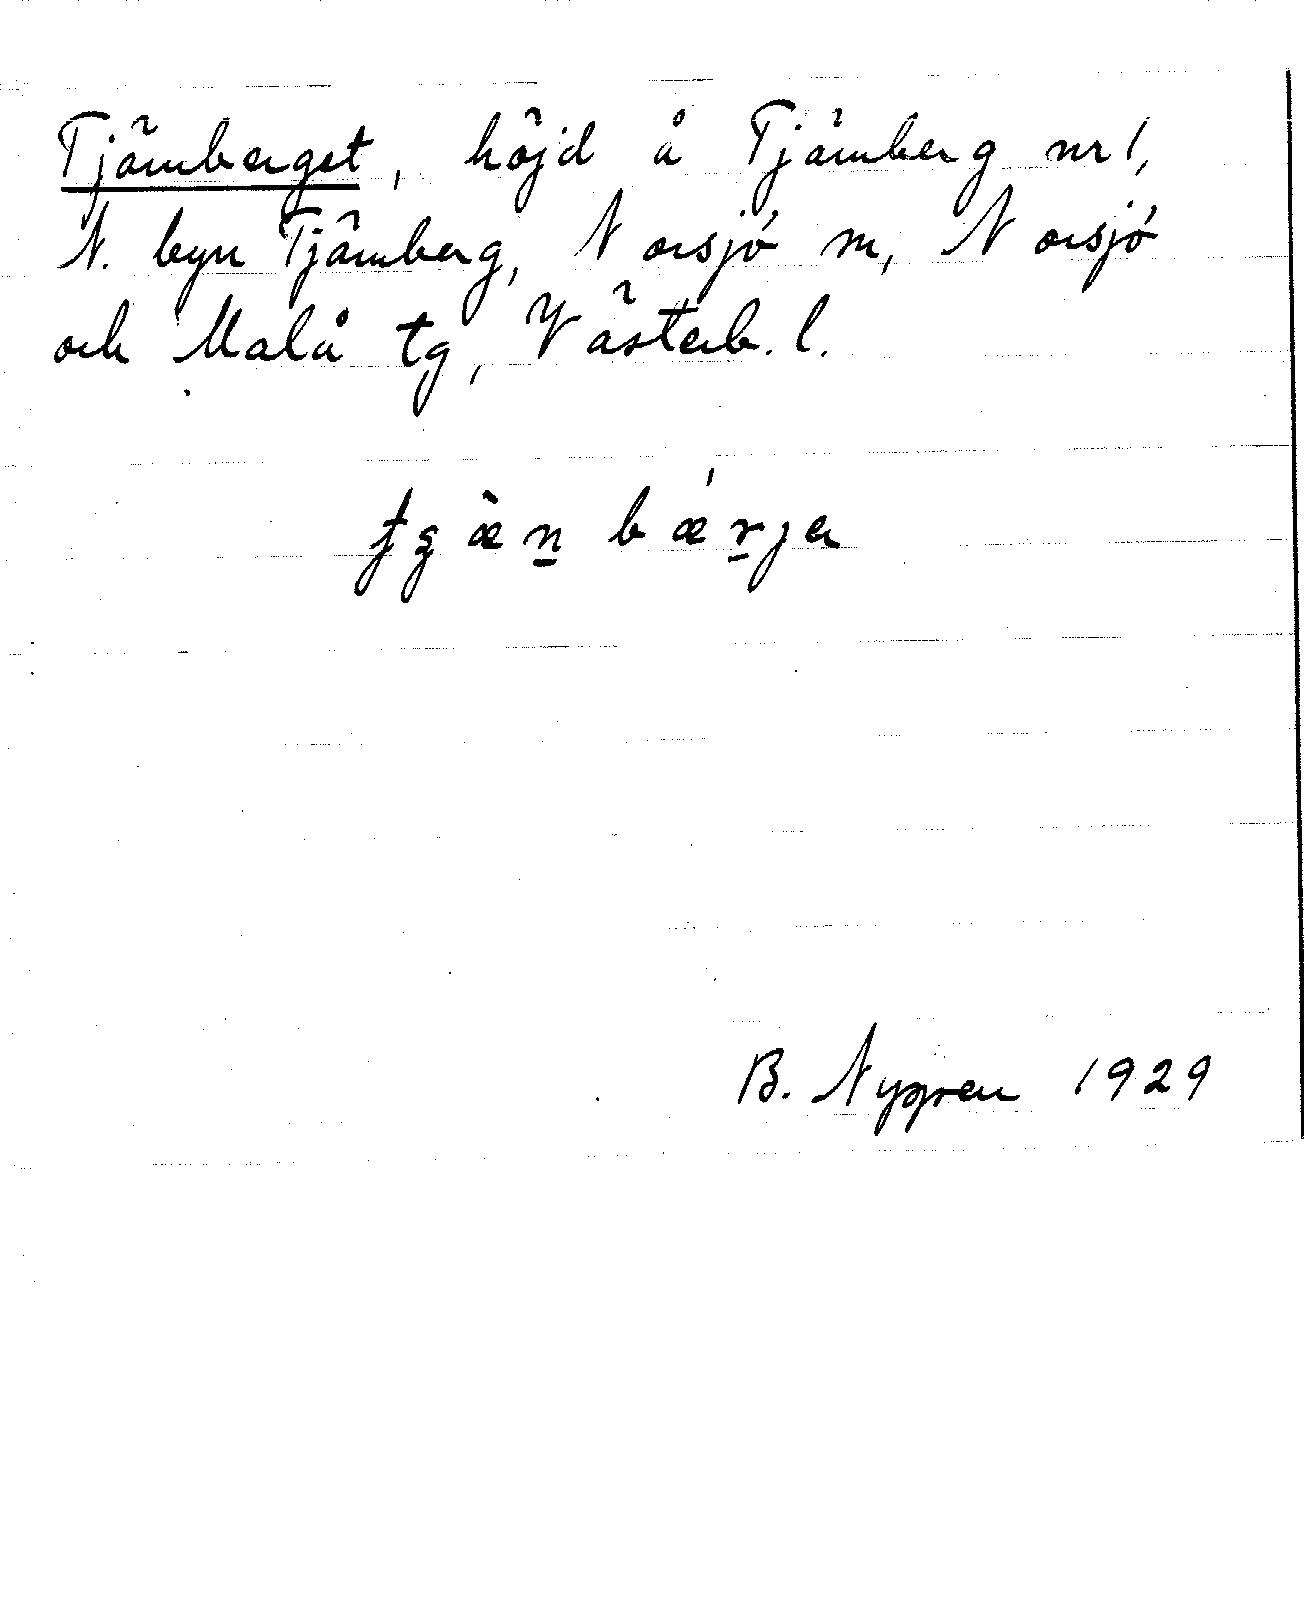 Tjämberget, höjd å Tjämberg nr 1,
N. byn Tjämberg, Norsjö sn, Norsjö
och Malå tg, Västerb. l.
B. Nygren 1929